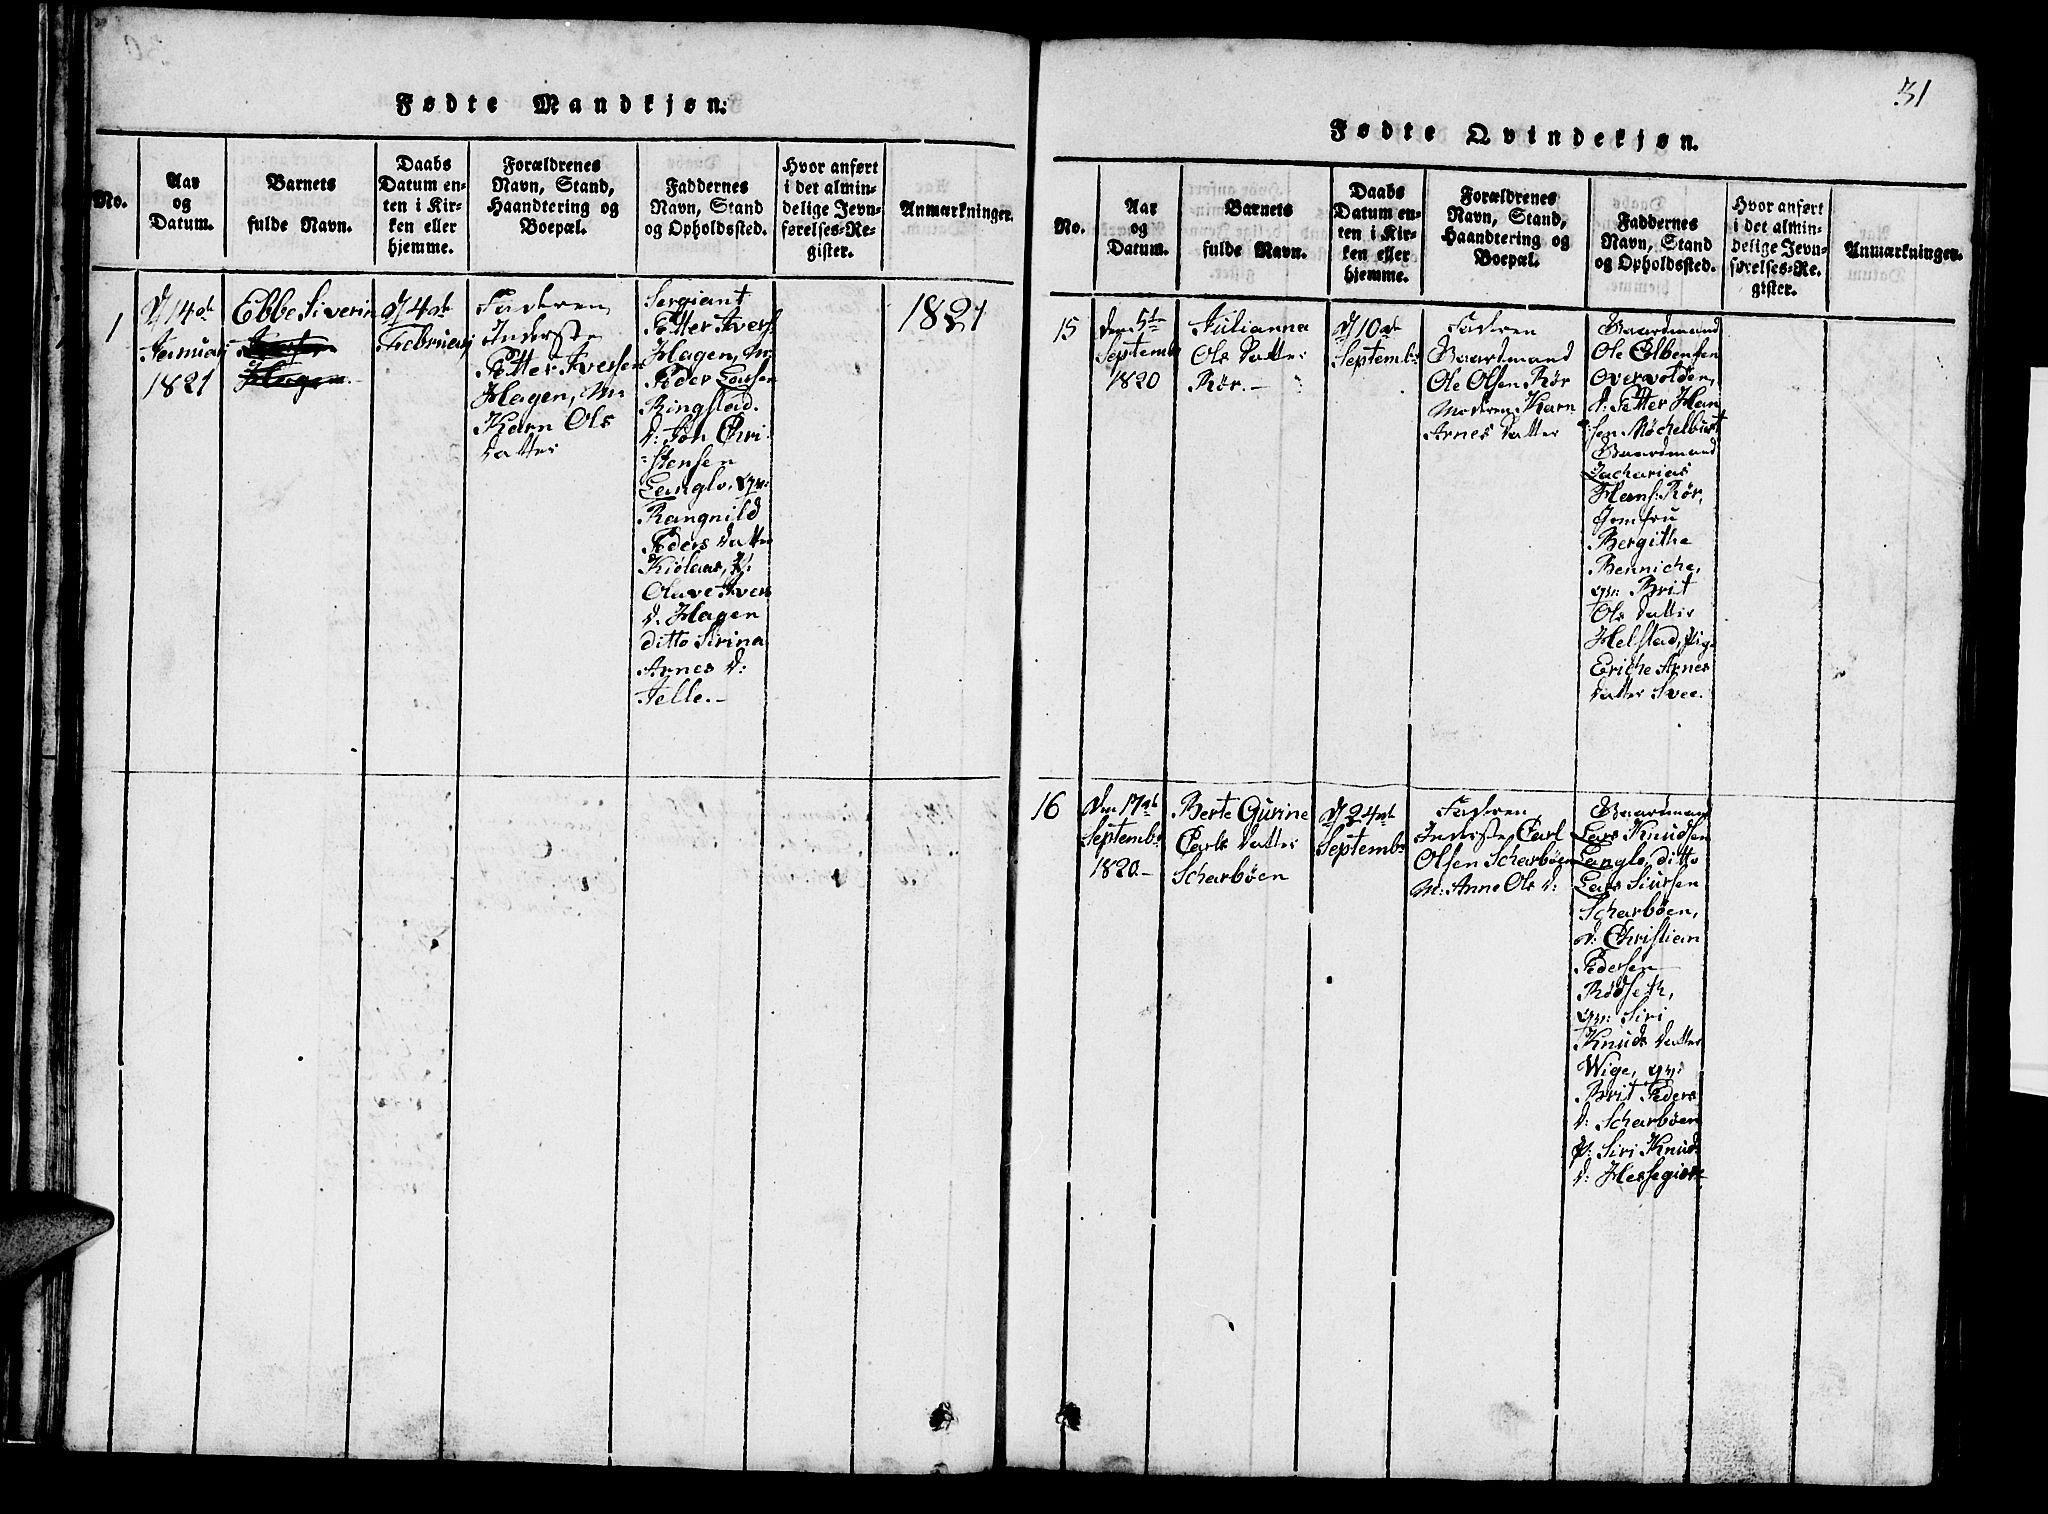 Fødte Mandkjøn.
No.
Aar
og
Datum.
Barnets
fulde Navn.
Daabs
Datum en-
ten i Kir-
ken eller
hjemme.
Forældrenes
Navn, Stand,
Haandtering og
Boepæl.
Faddernes
Navn, Stand
og Opholdssted.
Hvor anført
i det almin-
delige Jevn-
førelses-Re-
gister.
Anmærkninger.
1
d 14de
Januari
1821
Ebbe Siverin
Iversen
Hagen
d 4de
Februarj
Faderen
Inderste
Petter Iversen
Hagen, M:
Karn Ols
datter
Sergiant
Petter Ivers:
Hagen, M:
Peder
Ringstad.
d: Jon Chri-
-stensen
Langlo, qv:
Rangnild
Peders datter
Kiølaas, P:
Olave Ivers
d. Hagen
ditto Sirina
Arnes d:
Jelle.-
1821
31
Fødte Qvindekjøn.
No.
Aar
og
Datum.
Barnets
fulde Navn.
Daabs
Datum en-
ten i Kir-
ken eller
hjemme.
Forældrenes
Navn, Stand,
Haandtering og
Boepæl.
Faddernes
Navn, Stand
og Opholdssted.
Hvor anført
i det almin-
delige Jevn-
førelses-Re-
gister.
Anmærkninger.
15
den 5te
Septemb:
1820
Julianna
Ols datter
Rør.-
d 10de
Septemb:
Faderen
Gaardmand
Ole Olsen Rør
Moderen Karn
Arnes datter
Gaardmand
Ole Colbensen
Overvolden,
d: Petter Han
:sen
Gaardmand
Zacharias
Hans: Rør,
Jomfru
Bergithe
Benniche,
qv: Brit
Ols datter
Helstad, Pige
Eriche Arnes
datter Svee.
16
den 17de
Septemb:
1820.-
Berte Gurine
Carls datter
Scharbøen
d 24de
Septemb:
Faderen
Inderste Carl
Olsen Scharbøen
M: Anne Ols d:
Gaardmand
Lars Knudsen
Langlo, ditto
Lars Siursen
Scharbøen,
d: Christian
Pedersen
Rødseth,
qv: Siri
Knuds datter
Wige, qv:
Brit Peders
d: Scharbøen
P: Siri Knuds
d: